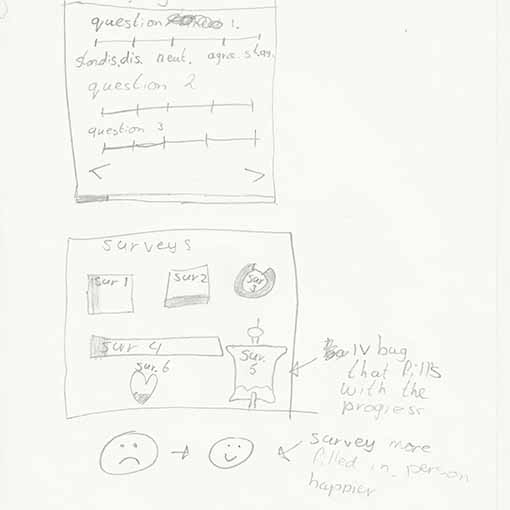 question 1.
dis. neut. agree
question 2
question 3
surveys
sur 1 sur 2 sur 3
sur 4
sur. 5
sur. 6
IV bag
that fills
with the
progress
survey more
filled in, person
happier